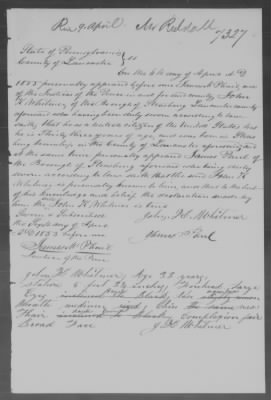 Rec 9. April Mr Riddall
7327
State of Pennsylvania
County of Lancaster ss
On the 6th day of April AD
1853 personally appeared before me
one of the Justices of the Peace in and for said county John
H. Whitmer of the borough of Strasburg Lancaster county
aforesaid who having been duly sworn according to law
saith, that he is a citizen of the United States, that
he is thirty three years of age, and was born in
township in the County of Lancaster aforesaid and
at the same time personally appeared James Paul of
the Borough of Strasburg aforesaid who being duly
sworn according to law saith that the said John H
Whitmer is personally known to him, and that to the best
of his knowledge and belief the declaration made by
him the John H. Whitmer is true
Sworn & Subscribed John H. Whitmer
the 6th day of April James Paul
AD 1853 before me
Justice of the Peace
John H. Whitmer, Age 33 years,
Stature 6 feet 2½ inches, Forehead large
Eyes inclined to black, Nose
Mouth medium, Chin the same
Hair inclined to Complexion fair
Broad Face J H Whitmer